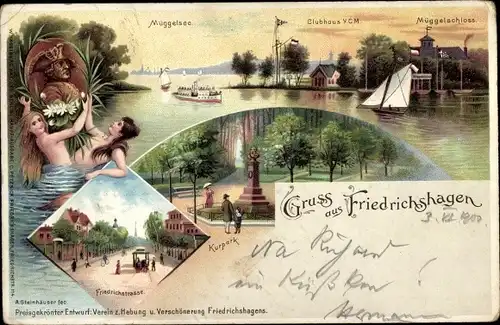 Müggelsee.
Clubhaus Y.C.M.
Müggelschloss.
Gruss aus Friedrichshagen
1900
Kurpark
Friedrichstrasse.
Na
ein Küßchen!
Hermann
A. Steinhäuser fec.
Preisgekrönter Entwurf: Verein z. Hebung u. Verschönerung Friedrichshagens.